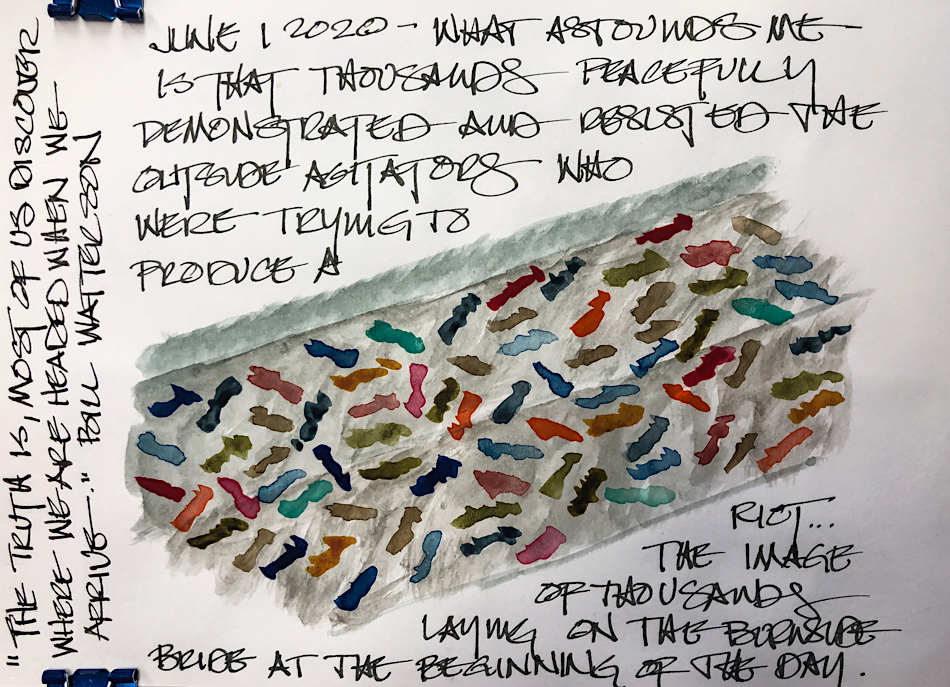 JUNE 1 2020 - WHAT ASTOUNDS ME
IS THAT THOUSANDS PEACEFULLY
DEMONSTRATED AND RESISTED THE
OUTSIDE AGITATORS WHO
WERE TRYING TO
PRODUCE A
RIOT...
THE IMAGE
OF THOUSANDS
LAYING ON THE BURNSIDE
BRIDE AT THE BEGINNING OF THE DAY.
"THE TRUTH IS, MOST OF US DISCOVER
WHERE WE ARE HEADED WHEN WE
ARRIVE." BILL WATTERSON